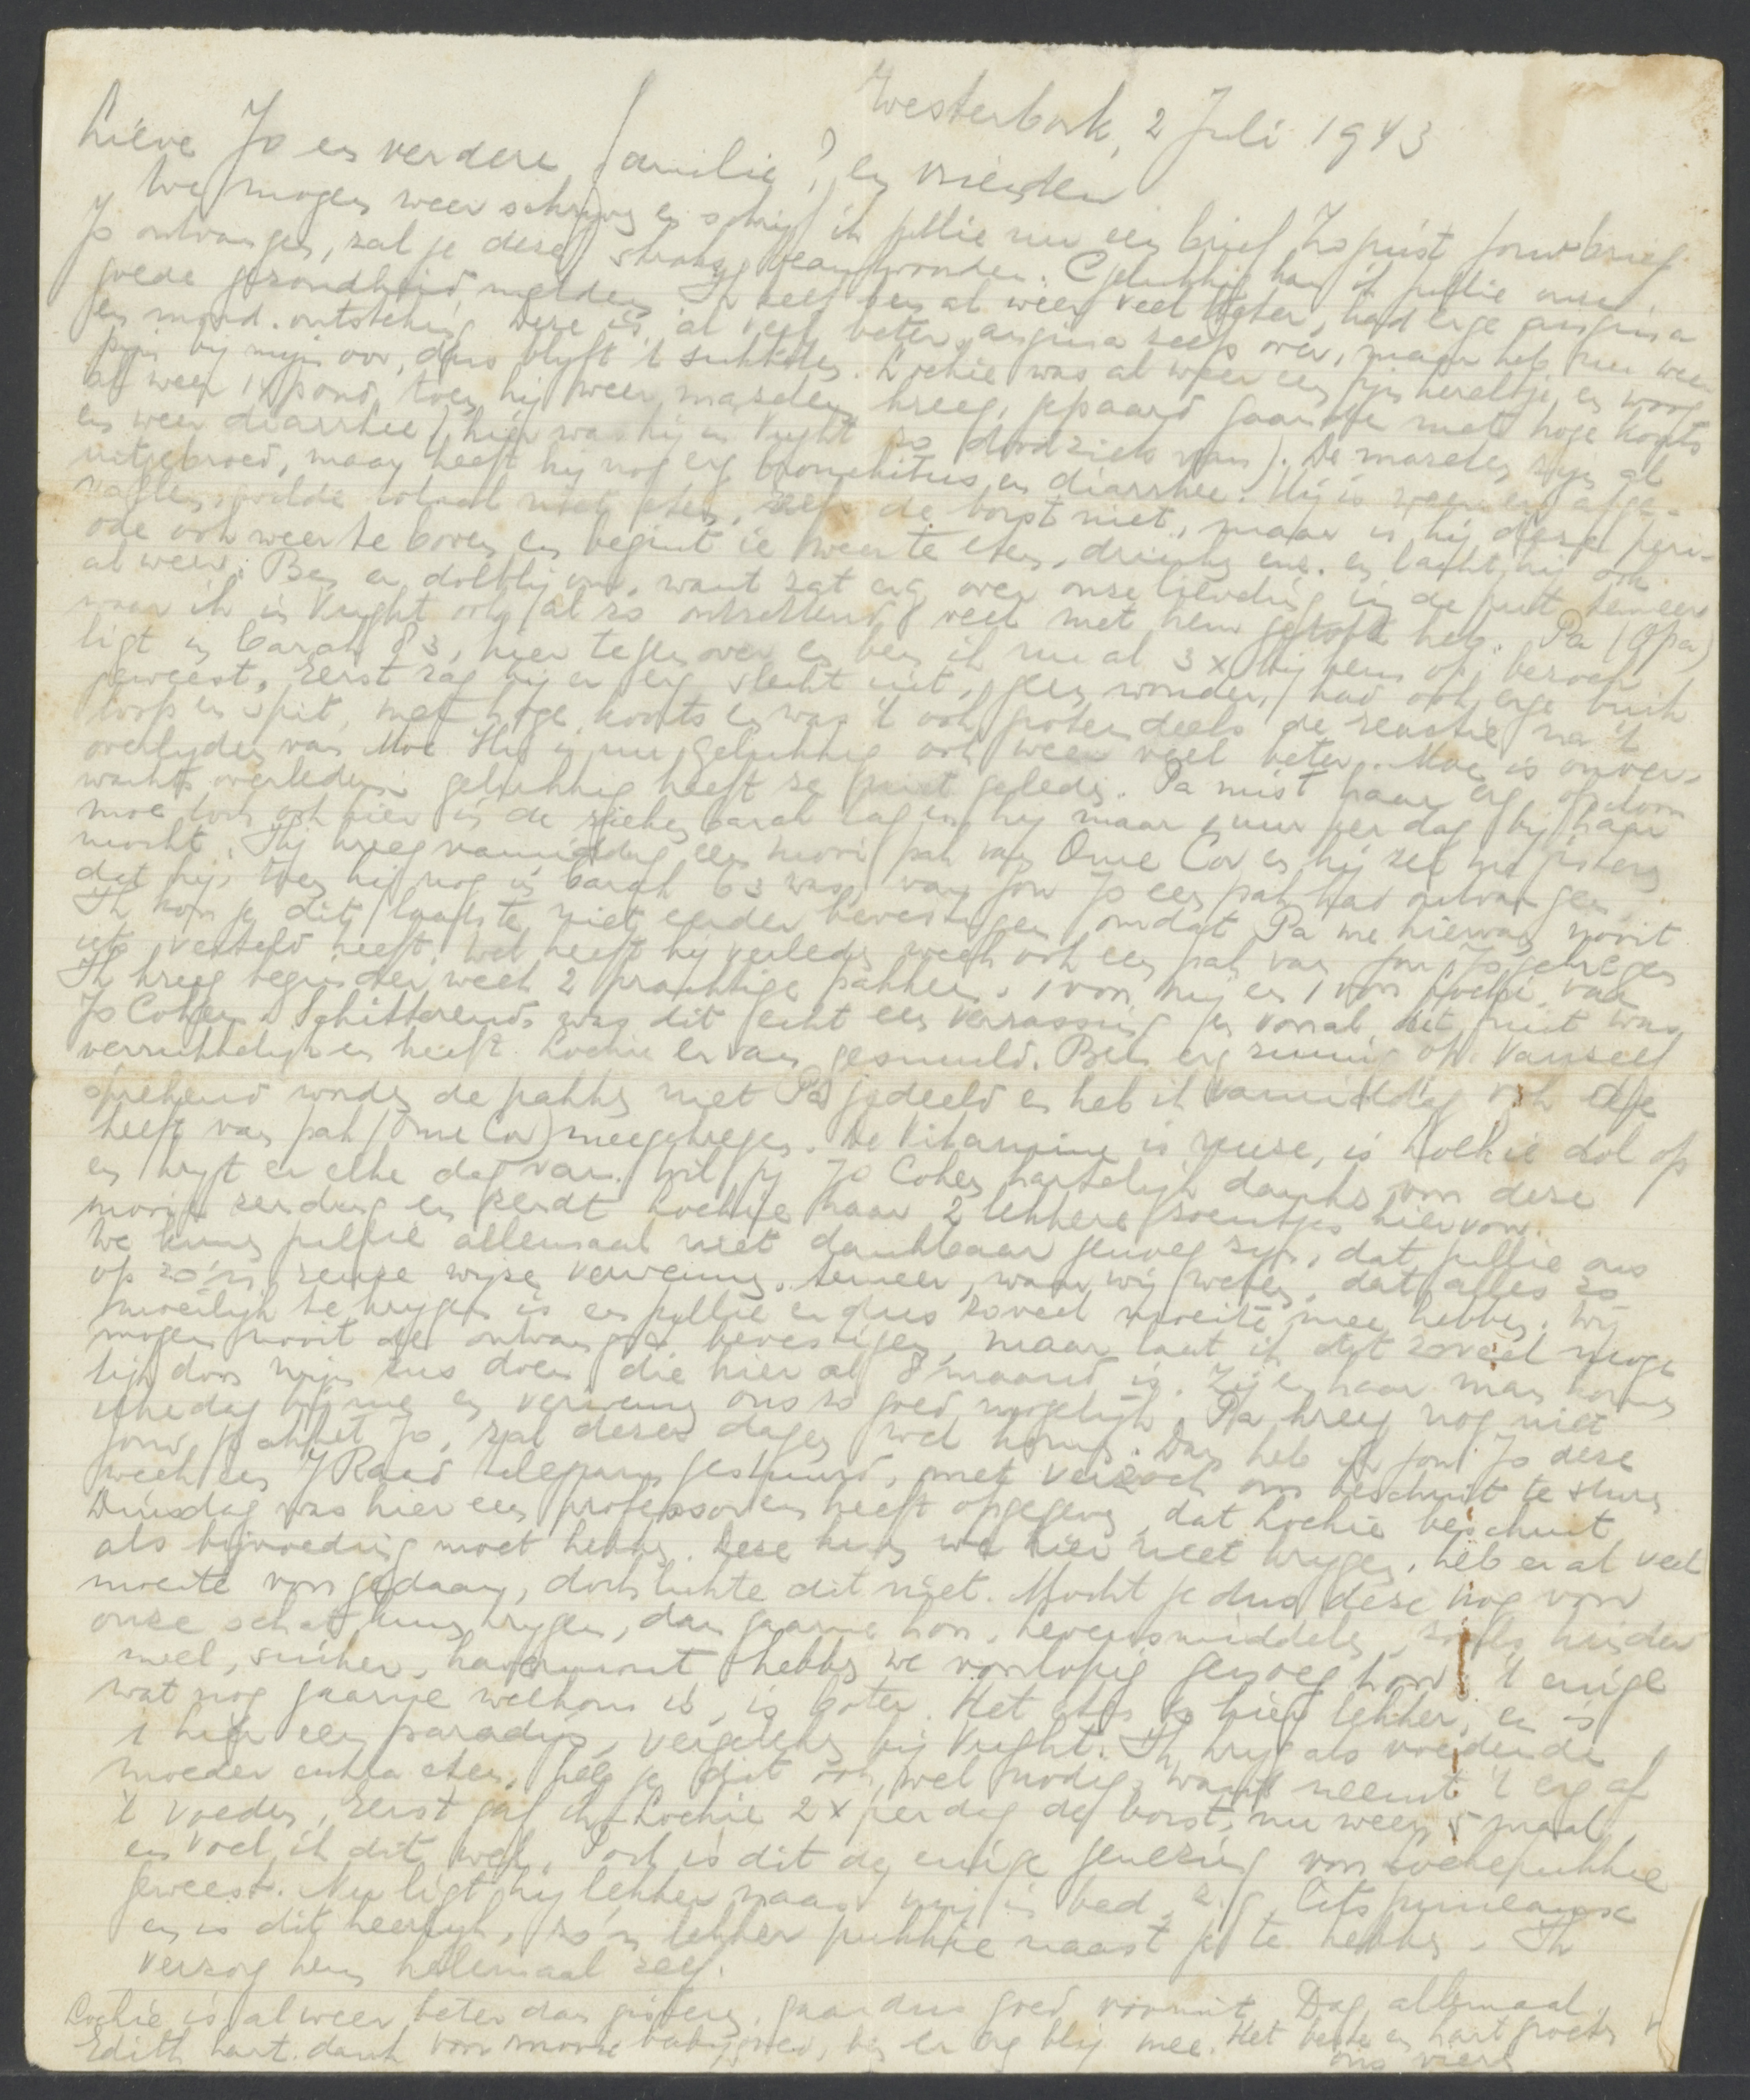 Westerbork, 2 Juli 1943
Lieve Jo en verdere familie, en vrienden
We mogen weer schrijven en schrijf ik jullie nu een brief. Zo juist jouw brief
Jo ontvangen, zal je deze straks beantwoorden. Gelukkig kan ik jullie onze
goede gezondheid melden. Ik zelf ben al weer veel beter, had erge angina
en mond-ontsteking. Deze is al veel beter, angina zelfs over, maar heb nu weer
pijn bij mijn oor, dus blijft 't sukkelen. Lochie was al weer een fijn kereltje en woog
al weer 14 pond, toen hij weer mazelen kreeg, gepaard gaande met hoge koorts
en weer diarrhee, (hier was hij in Vught zo doodziek van). De mazelen zijn al
uitgebroed, maar heeft hij nog erg bronchitus en diarrhee. Hij is weer erg afge-
vallen, wilde totaal niet eten, zelfs de borst niet, maar is hij deze peri-
ode ook weer te boven en begint ie weer te eten, drinken enz. en lacht hij ook
al weer. Ben er dolblij om, want zat erg over onze lieveling in de put temeer
waar ik in Vught ook al zo ontzettend veel met hem getobt heb. Pa (Opa)
ligt in barak 83, hier tegenover en ben ik nu al 3 x bij hem op bezoek
geweest. Eerst zag hij er erg slecht uit, geen wonder, had ook erge buik
loop en spit, met hoge koorts en was 't ook grotendeels de reactie na 't
overlijden van Moe. Hij is nu gelukkig ook weer veel beter. Moe is onver-
wachts overleden, gelukkig heeft ze niet geleden. Pa mist haar erg, ofschoon
moe toch ook hier in de ziekenbarak lag en hij maar 1 uur per dag bij haar
mocht. Hij kreeg vanmiddag een mooi pak van Ome Cor en hij zei me gisteren
dat hij, toen hij nog in barak 63 was, van jou Jo een pak had ontvangen.
Ik kon je dit laatste niet eerder bevestigen omdat Pa me hiervan nooit
iets verteld heeft. Wel heeft hij verleden week ook een pak van jou Jo gekregen
Ik kreeg begin der week 2 prachtige pakken, 1 voor mij en 1 voor Lochie van
Jo Cohen. Schitterend was dit echt een verrassing en vooral het fruit was
verrukkelijk en heeft Lochie ervan gesmuld. Ben erg zuinig op. Vanzelf
sprekend worden de pakken met Pa gedeeld en heb ik vanmiddag ook
heeft van pak (Ome Cor) meegekregen. De Vitamine is reuze, is Lochie dol op
en krijgt er elke dag van. Wil jij Jo Cohen hartelijk danken voor deze
mooie zending en zendt Lochie haar 2 lekkere zoentjes hiervoor.
We kunnen jullie allemaal niet dankbaar genoeg zijn, dat jullie ons
op zo'n reuze wijze verwennen, temeer, waar wij weten, dat alles zo
moeilijk te krijgen is en jullie er dus zoveel moeite mee hebben. Wij
mogen nooit de ontvangst bevestigen, maar laat ik dit zoveel moge
lijk door mijn zus doen die hier al 8 maand is. Zij en haar man komen
elke dag bij me en verwennen ons zo goed mogelijk. Pa kreeg nog niet
jouw pakket Jo, zal dezer dagen wel komen. Dan heb ik jou Jo deze
week een J Raad telegram gestuurd, met verzoek om beschuit te sturen
Dinsdag was hier een professor en heeft opgegeven, dat Lochie beschuit
als bijvoeding moet hebben. Deze kunnen we hier niet krijgen, heb er al veel
moeite voor gedaan, doch lukte dit niet. Mocht je dus deze nog voor
onze schat kunnen krijgen, dan gaarne hoor. Levensmiddelen, zoals kinder
meel, suiker, havermout hebben we voorlopig genoeg hoor, 't enige
wat nog gaarne welkom is, is boter. Het eten is hier lekker, en is
't hier een paradijs, vergeleken bij Vught. Ik krijg als voedende
moeder extra eten, heb je dit ook wel nodig, want neemt 't erg af
't voeden. Eerst gaf ik Lochie 2 x per dag de borst, nu weer 5 maal
en voel ik dit wel. Toch is dit de enige genezing voor Lochepukkie
geweest. Nu ligt hij lekker naast mij in bed,
en is dit heerlijk, zo'n lekker pukkie naast je te hebben. Ik
verzorg hem helemaal zelf.
Lochie is al weer beter dan gisteren, gaan dus goed vooruit. Dag allemaal
Edith hart. dank voor mooie babygoed, ben er erg blij mee. Het beste en hart groeten
ons vieren